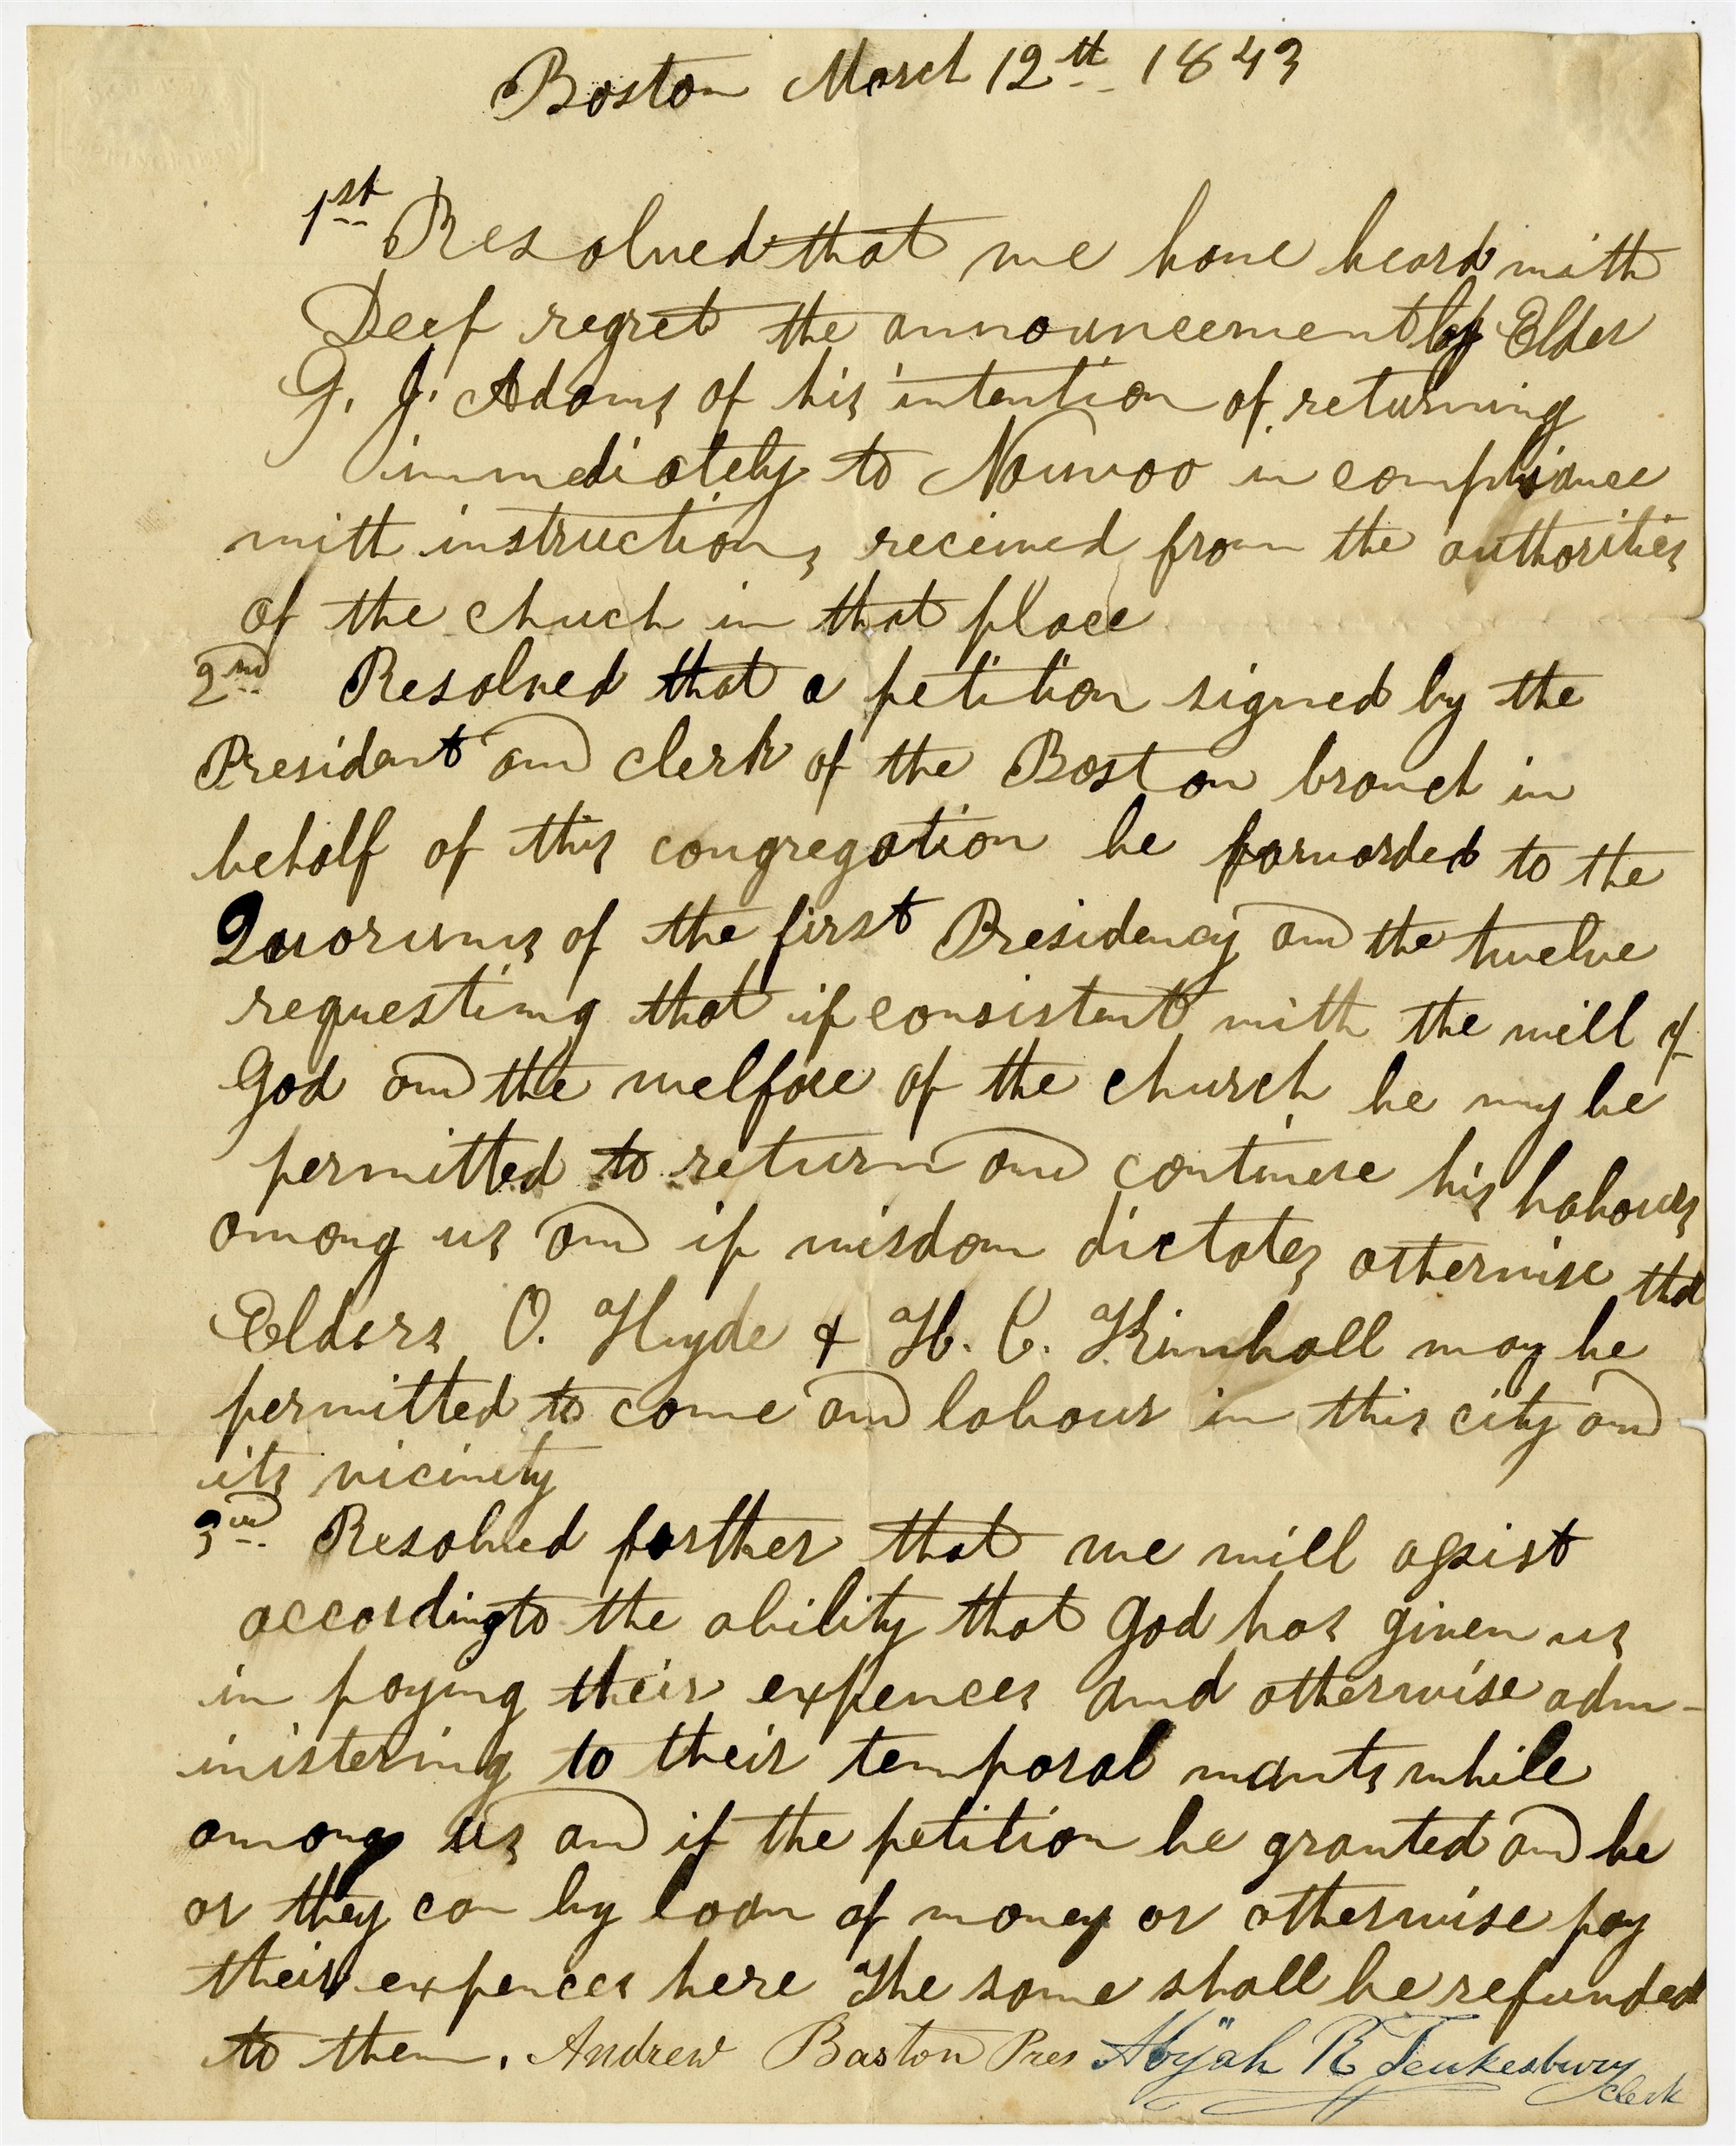 Boston March 12th 1843
1st Resolved that we have heard with
Deep regret the announcement by Elder
G. J. Adams of his intention of returning
immediately to Nauvoo in compliance
with instructions received from the authorities
of the chuch in that place
2nd Resolved that a petition signed by the
President and clerk of the Boston branch in
behalf of this congregation be forwarded to the
Quorums of the first Presidency and the twelve
requesting that if consistent with the will of
God and the welfare of the church he may be
permitted to return and continue his labours
among us and if wisdom dictates otherwise that
Elders O. Hyde & H. C. Kimball may be
permitted to come and labour in this city and
its vicinity
3rd Resolved farther that we will assist
according to the ability that God has given us
in paying their expences and otherwise adm-
inistering to their temporal wants while
among us and if the petition be granted and he
or they can by loan of money or otherwise pay
their expences here the same shall be refunded
to them. Andrew Baston Pres Abijah R Tewkesbury
clerk